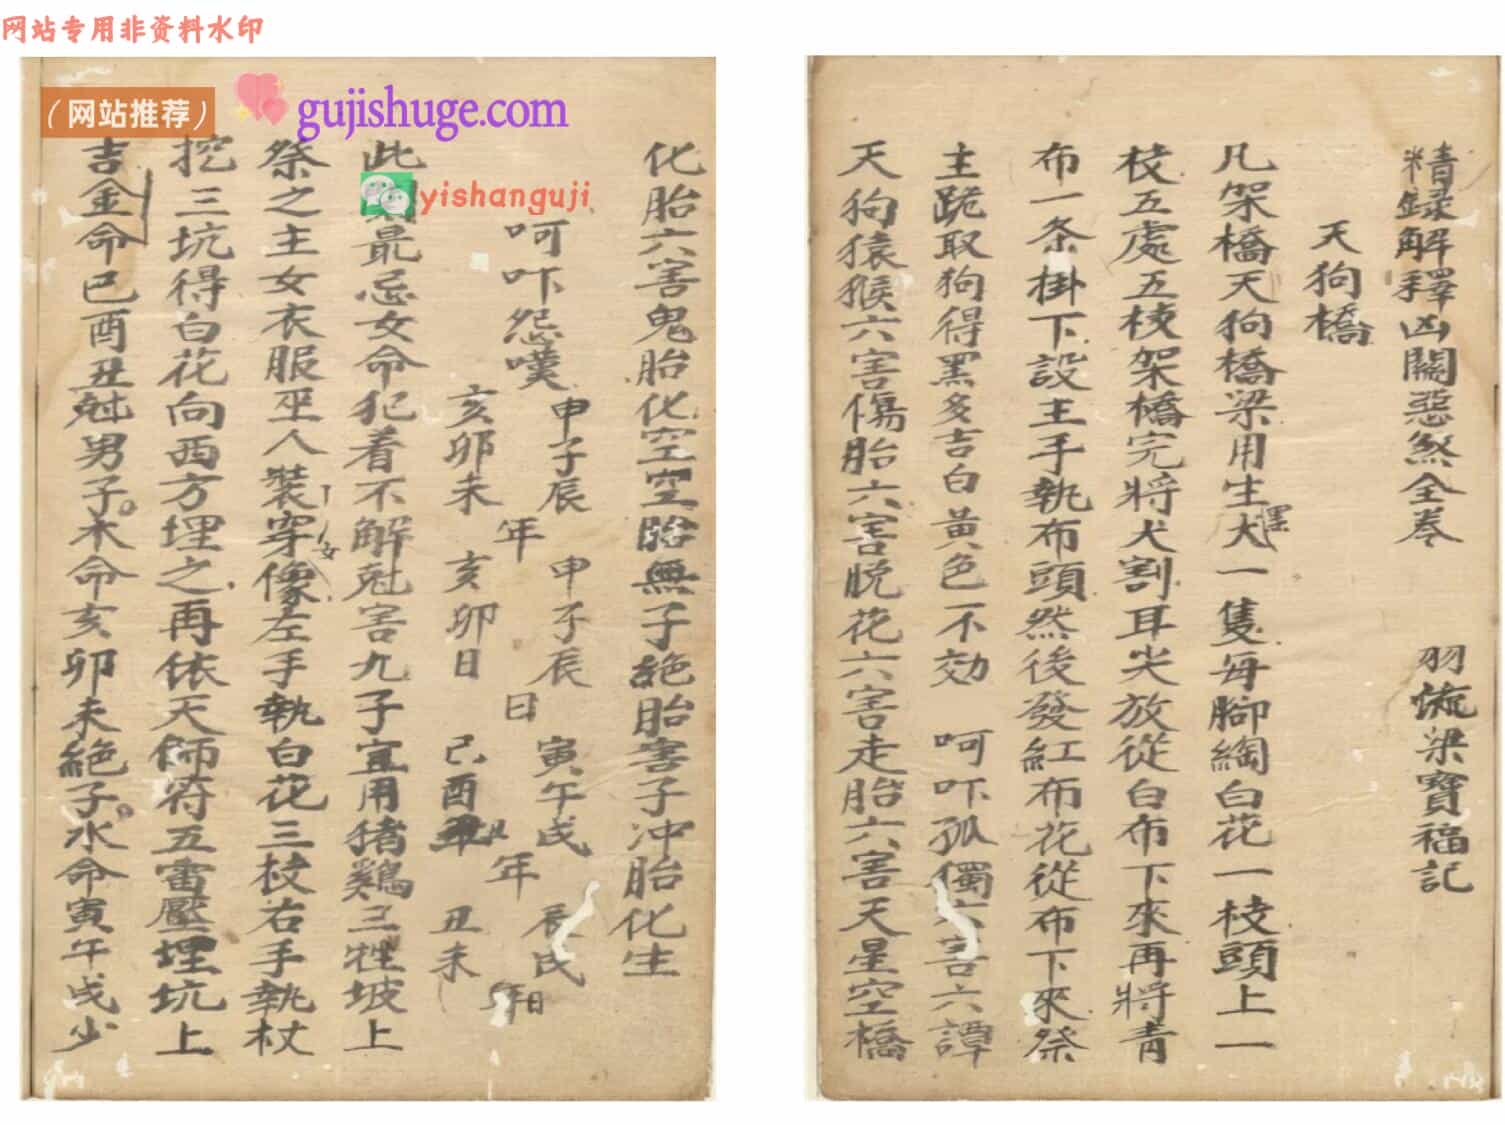 网站专用非资料水印
（网站推荐）
gujishuge.com
yishanguji
精録解釋凶關惡煞全卷 羽流梁寶福記
天狗橋
凡架橋天狗橋梁用生犬一隻每腳綯白花一枝頭上一
黑
枝五處五枝架橋完將犬割耳尖放從白布下來再將青
布一条掛下設主手執布頭然後發紅布花從布下來祭
主跪取狗得黑多吉白黃色不効 呵吓孤獨六害六譚
天狗猿猴六害傷胎六害脱花六害走胎六害天星空橋
化胎六害鬼胎化空空胎無子絶胎害子冲胎化生
呵吓怨嘆
申子辰
亥卯未
年
申子辰
亥卯日
日
寅午戌
己酉丑
年
辰戌
丑未
年日
此最忌女命犯着不解尅害九子宜用猪鷄三牲坡上
祭之主女衣服巫人裝穿像左手執白花三枝右手執杖
女
挖三坑得白花向西方埋之再依天師符五雷壓埋坑上
吉金命巳酉丑尅男子木命亥卯未絶子水命寅午戌少